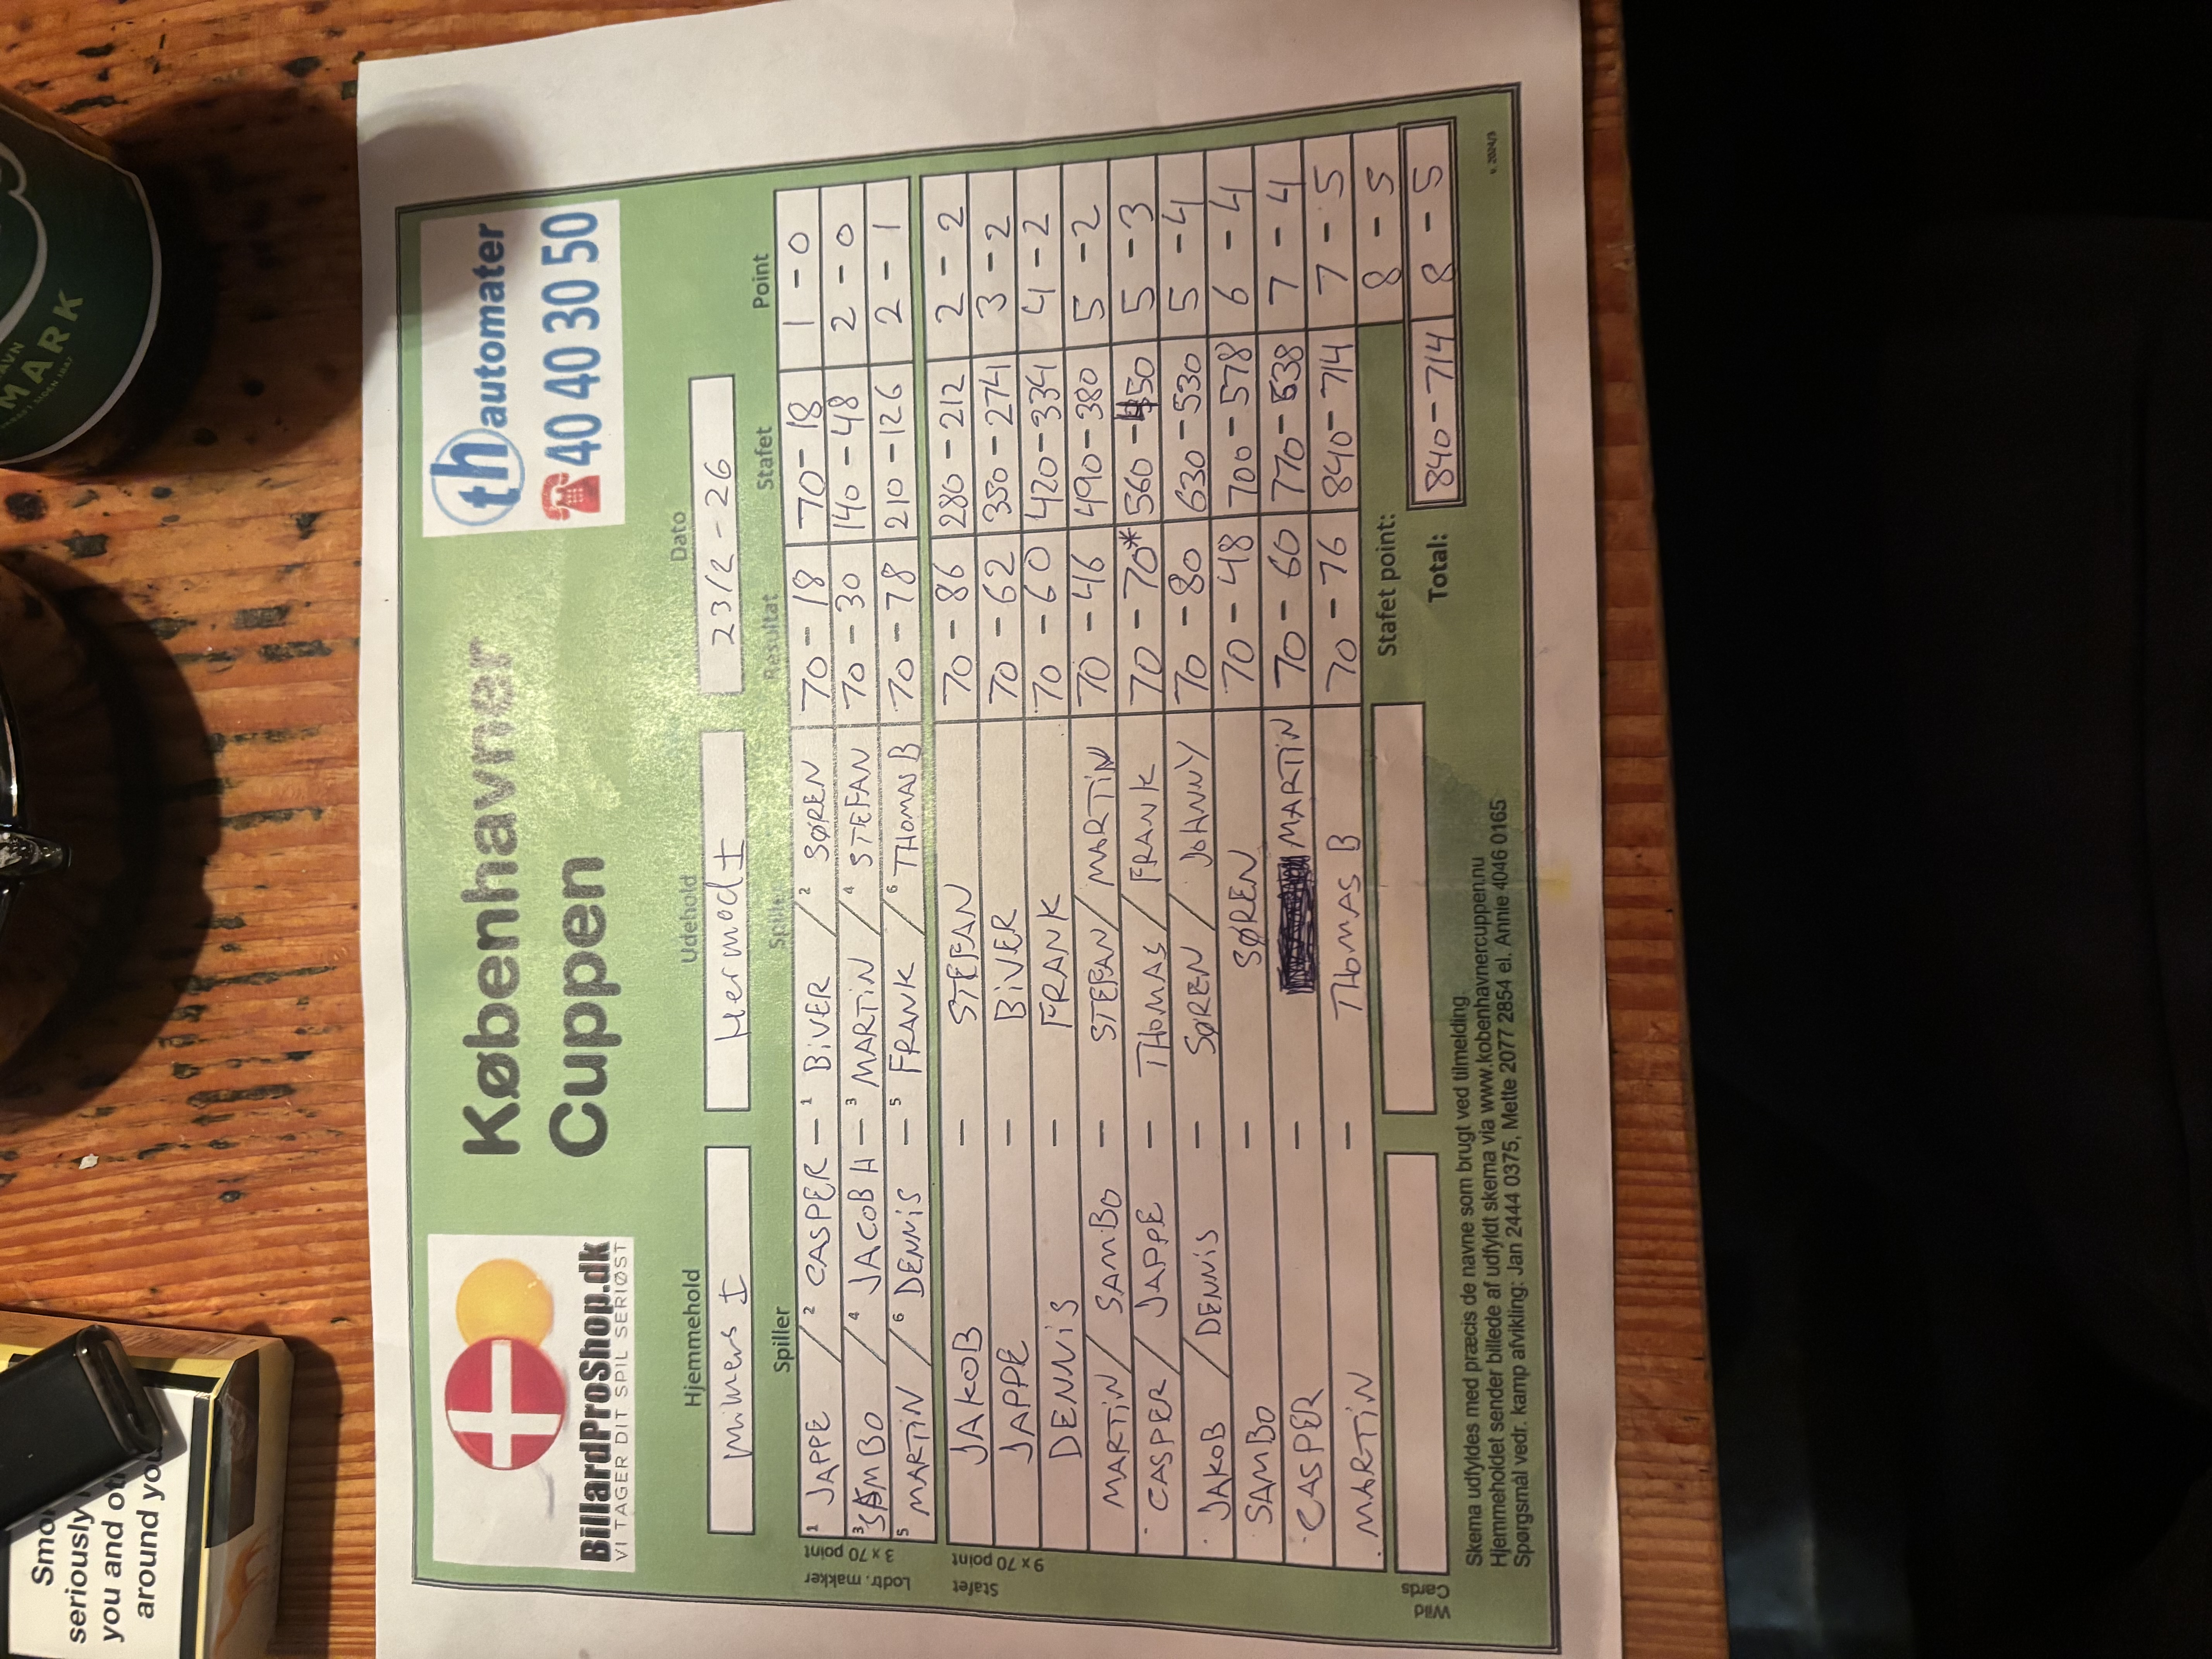 BillardProShop.dk
VI TAGER DIT SPIL SERIØST
Københavner
Cuppen
th automater
40 40 30 50
Hjemmehold
Udehold
Dato
Mimers I
Hermod I
23/2-26
Spiller
Spiller
Resultat
Stafet
Point
Lodtr. makker
3 x 70 point
1 JAPPE / 2 CASPER - 1 BIVER / 2 SØREN 70-18 70-18 1-0
3 SAMBO / 4 JACOB H - 3 MARTIN / 4 STEFAN 70-30 140-48 2-0
5 MARTIN / 6 DENNIS - 5 FRANK / 6 THOMAS B 70-78 210-126 2-1
Stafet
9 x 70 point
JAKOB - STEFAN 70-86 280-212 2-2
JAPPE - BIVER 70-62 350-274 3-2
DENNIS - FRANK 70-60 420-334 4-2
MARTIN / SAMBO - STEFAN / MARTIN 70-46 490-380 5-2
CASPER / JAPPE - THOMAS / FRANK 70-70* 560-450 5-3
JAKOB / DENNIS - SØREN / JOHNNY 70-80 630-530 5-4
SAMBO - SØREN 70-48 700-578 6-4
CASPER - MARTIN 70-60 770-638 7-4
MARTIN - THOMAS B 70-76 840-714 7-5
Wild
Cards
Stafet point: 8-5
Total: 840-714 8-5
Skema udfyldes med præcis de navne som brugt ved tilmelding.
Hjemmeholdet sender billede af udfyldt skema via www.kobenhavnercuppen.nu
Spørgsmål vedr. kamp afvikling: Jan 2444 0375, Mette 2077 2854 el. Annie 4046 0165
v. 2024/3
MARK
seriously
you and
around you